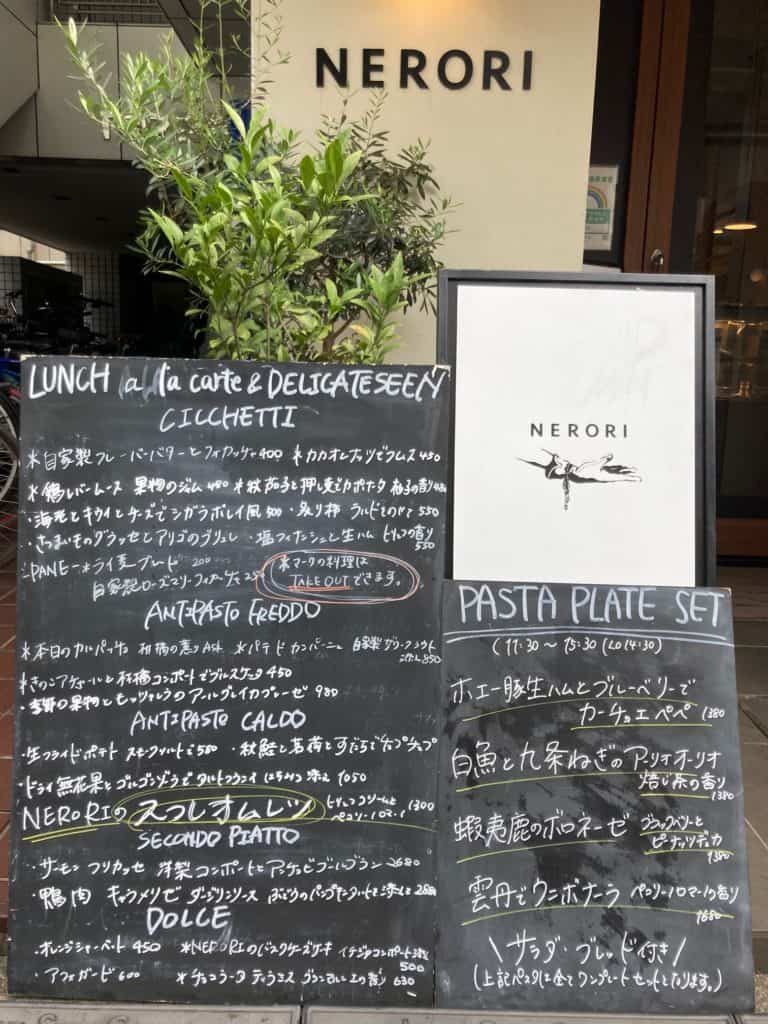 NERORI
NERORI
LUNCH a la carte & DELICATESEEN
CICCHETTI
*自家製フレーバーバターとフォカッチャ400 *カカオとナッツでフムス 450
*鶏レバームース 果物のジャム 480 *秋茄子と押し麦でカポナータ 柚子の香り
・海老とキウイとチーズでシガラボレイ風 ・炙り ラルドをのせて 550
・さつまいものグラッセとアリゴのブリュレ ・塩フィナンシェと生ハム トリュフの香り
550
PANE ライ麦ブレード 200
自家製ローズマリーフォカッチャ
*マークの料理は
TAKE OUTできます。
ANTIPASTO FREDDO
*本日のカルパッチョ の *パテドカンパーニュ 自家製ザワークラウト
添え850
*きのこアヒージョと コンポートでブルスケッタ 450
・季節の果物とモッツァレラのアルグレイカプレーゼ 980
ANTIPASTO CALDO
・生フライドポテト スモークソルトで580 ・秋鮭と茗荷とすだちでチュプチュプ
・ドライ無花果とゴルゴンゾーラでタルトフランベ はちみつ添え 1050
NERORIの スフレオムレツ トリュフクリームと
ペコリーノロマーノ 1300
SECONDO PIATTO
・サーモン フリカッセ 洋梨コンポートと ブールブラン 2680
・鴨肉 キャラメリゼ ダージリンソース ぶどうのパンプキンタルトを添えて
DOLCE
・オレンジシャーベット 450 *NERORIのバスクチーズケーキ イチジクコンポート添え
500
・アフォガード 600 *チョコラータ ティラミス グランマルニエの香り 630
PASTA PLATE SET
(11:30 ~ 15:30 (LO 14:30)
ホエー豚生ハムとブルーベリーで
カーチョエペペ 1380
白魚と九条ねぎのアーリオオーリオ
焙じ茶の香り
1380
蝦夷鹿のボロネーゼ ブラックベリーと
ピーナッツデュカ
1380
雲丹でウニボナーラ ペコリーノロマーノの香り
1680
\ サラダ・ブレッド付き /
(上記パスタは全てワンプレートセットとなります。)